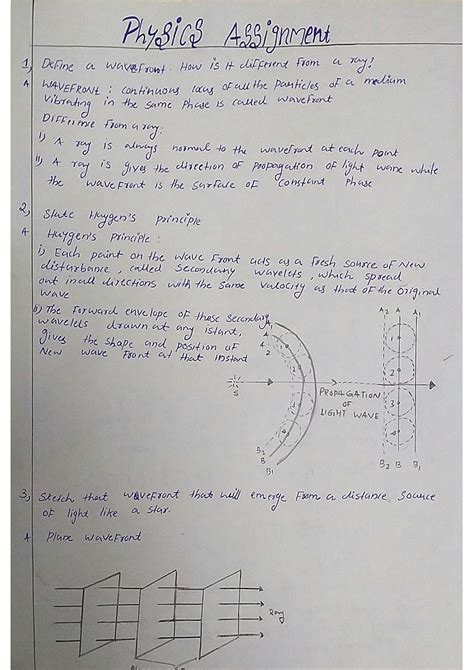 Physics Assignment
1, Define a wavefront. How is it different from a ray?
A WAVEFRONT : continuous locus of all the particles of a medium
vibrating in the same phase is called wavefront
Difference from a ray:
i) A ray is always normal to the wavefront at each point
ii) A ray is gives the direction of propagation of light wave while
the wavefront is the surface of constant phase
2, State Huygen's principle
A Huygen's Principle :
i) Each point on the wave front acts as a fresh source of new
disturbance, called secondary wavelets, which spread
out in all directions with the same velocity as that of the original
wave
ii) The forward envelope of these secondary
wavelets drawn at any istant,
gives the shape and position of
new wave front at that instant
A1
A
A2
1
2
3
4
S
B2
B
B1
PROPAGATION
OF
LIGHT WAVE
A2 A A1
1
2
3
4
B2 B B1
3, Sketch that wavefront that will emerge from a distance source
of light like a star.
A Plane wavefront
Ray